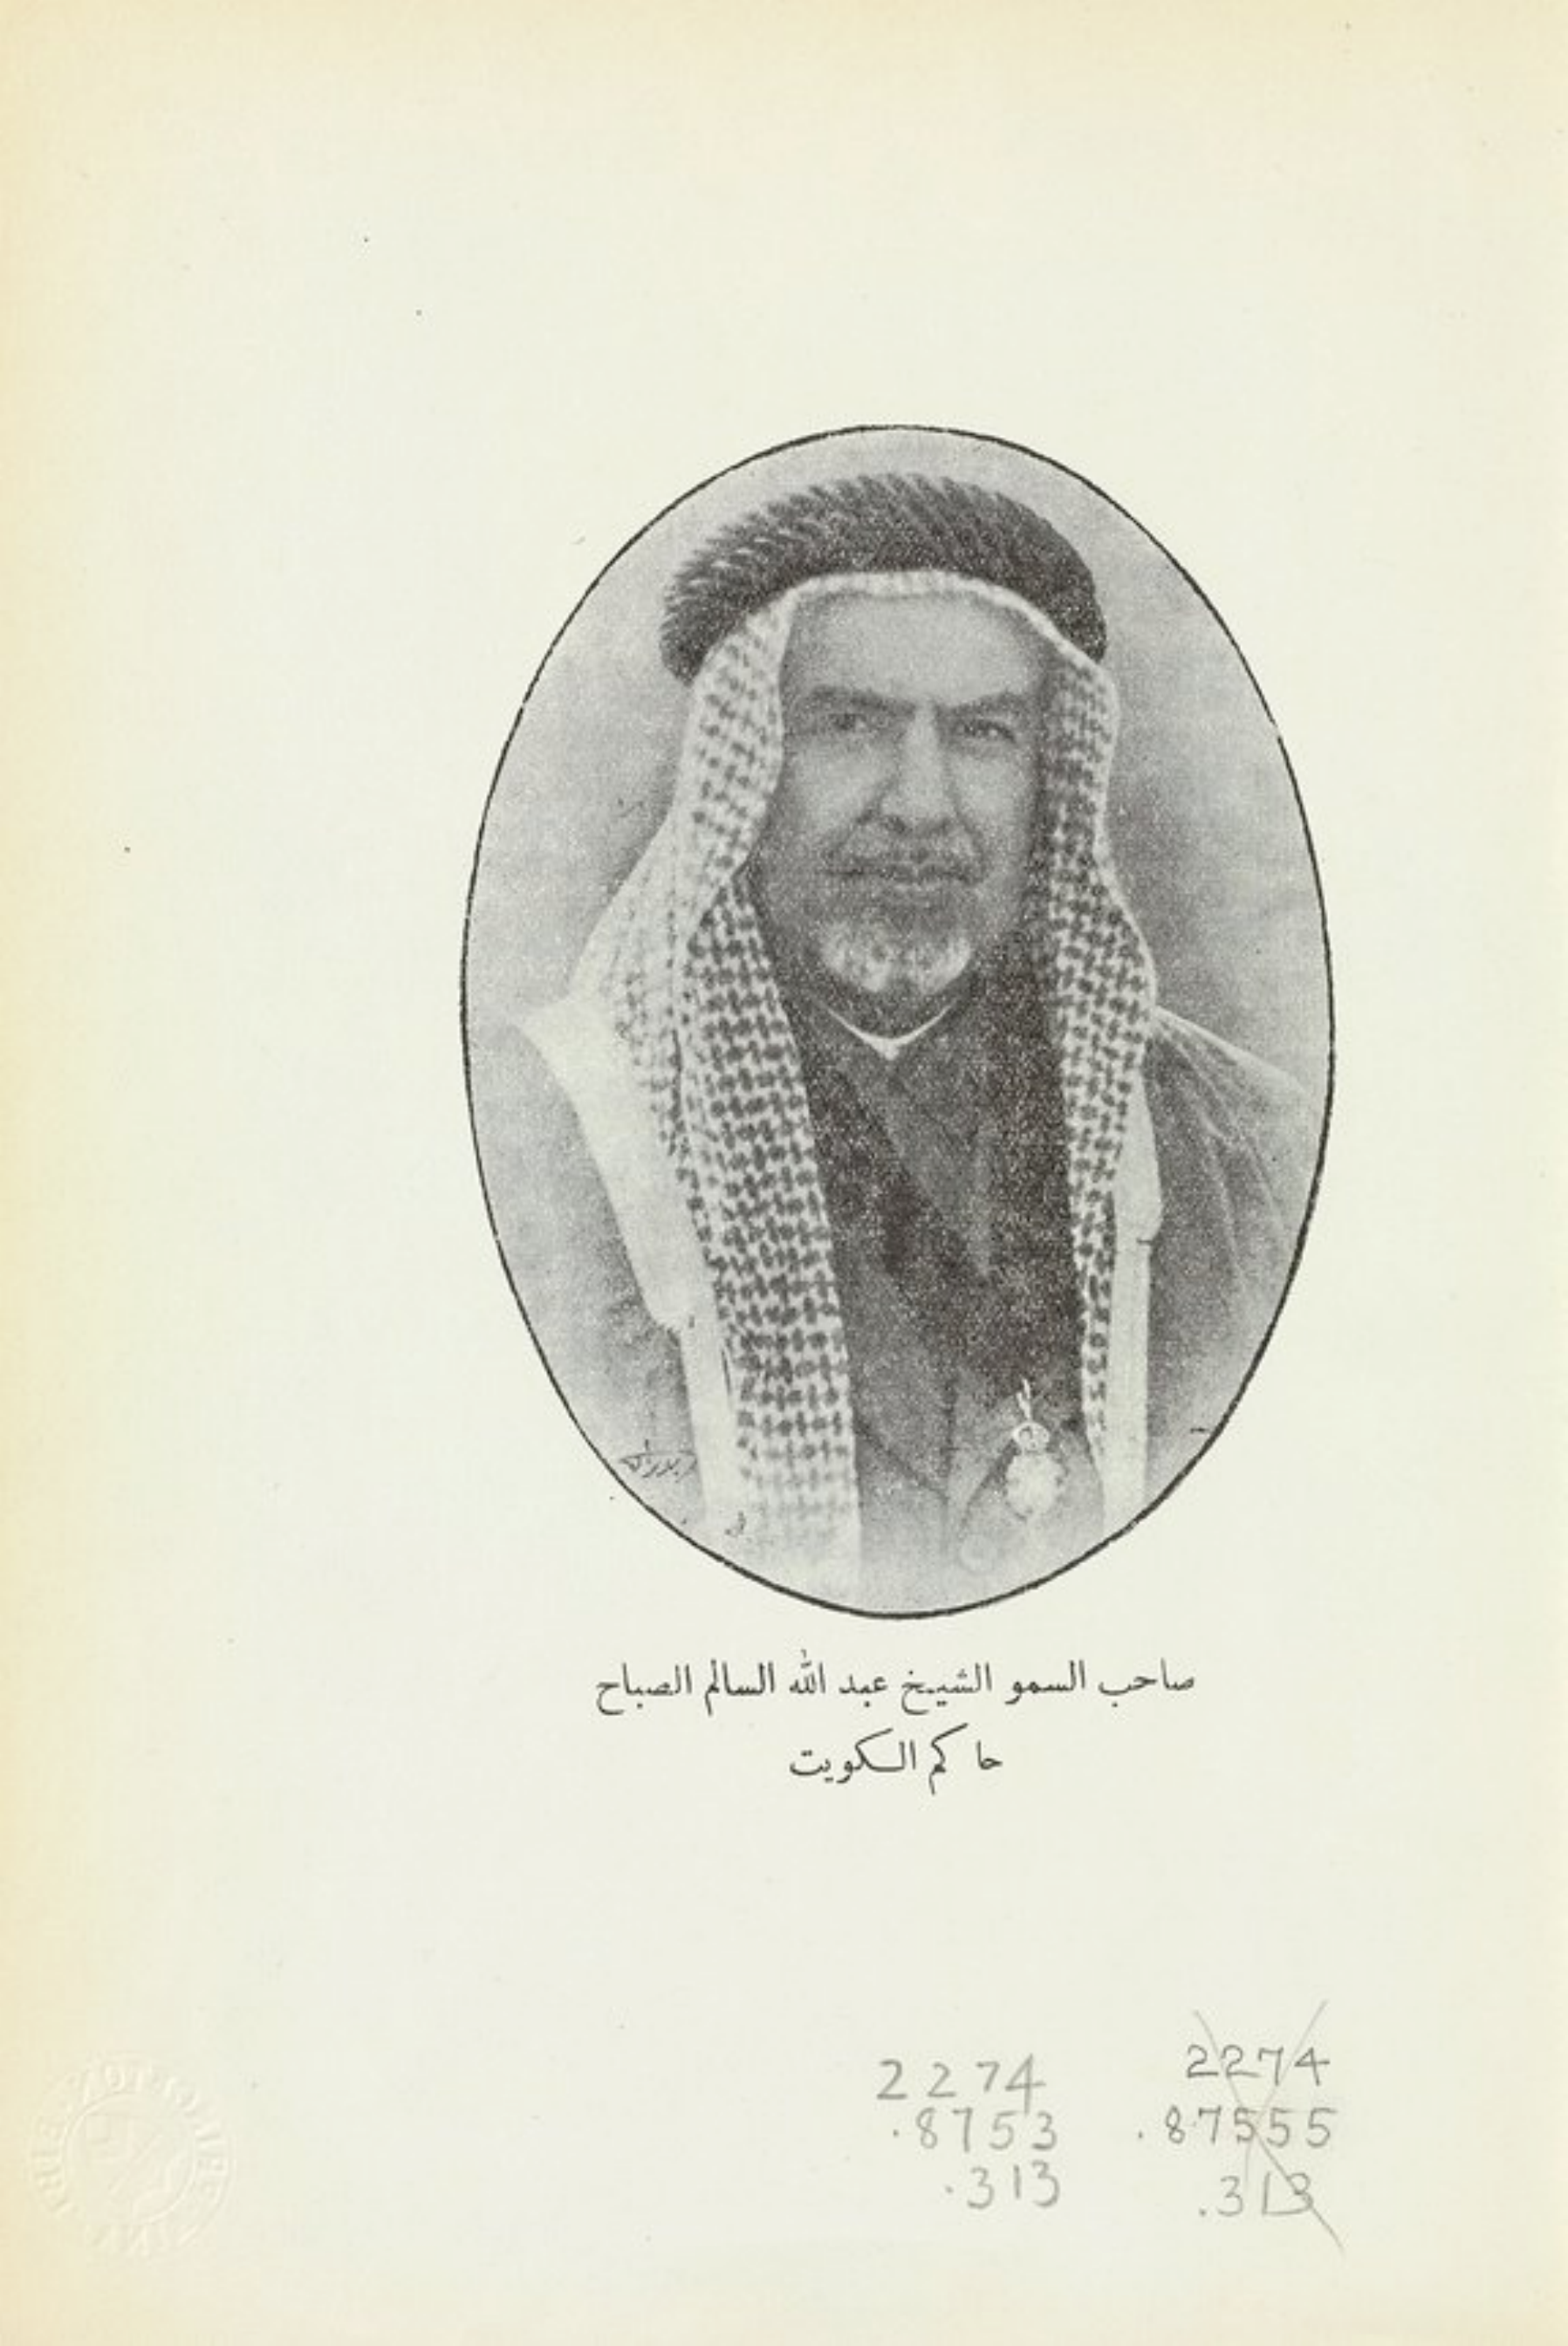 صاحب السمو الشيخ عبد الله السالم الصباح
حاكم الكويت
2274
.8753
.313
2274
.87555
.313